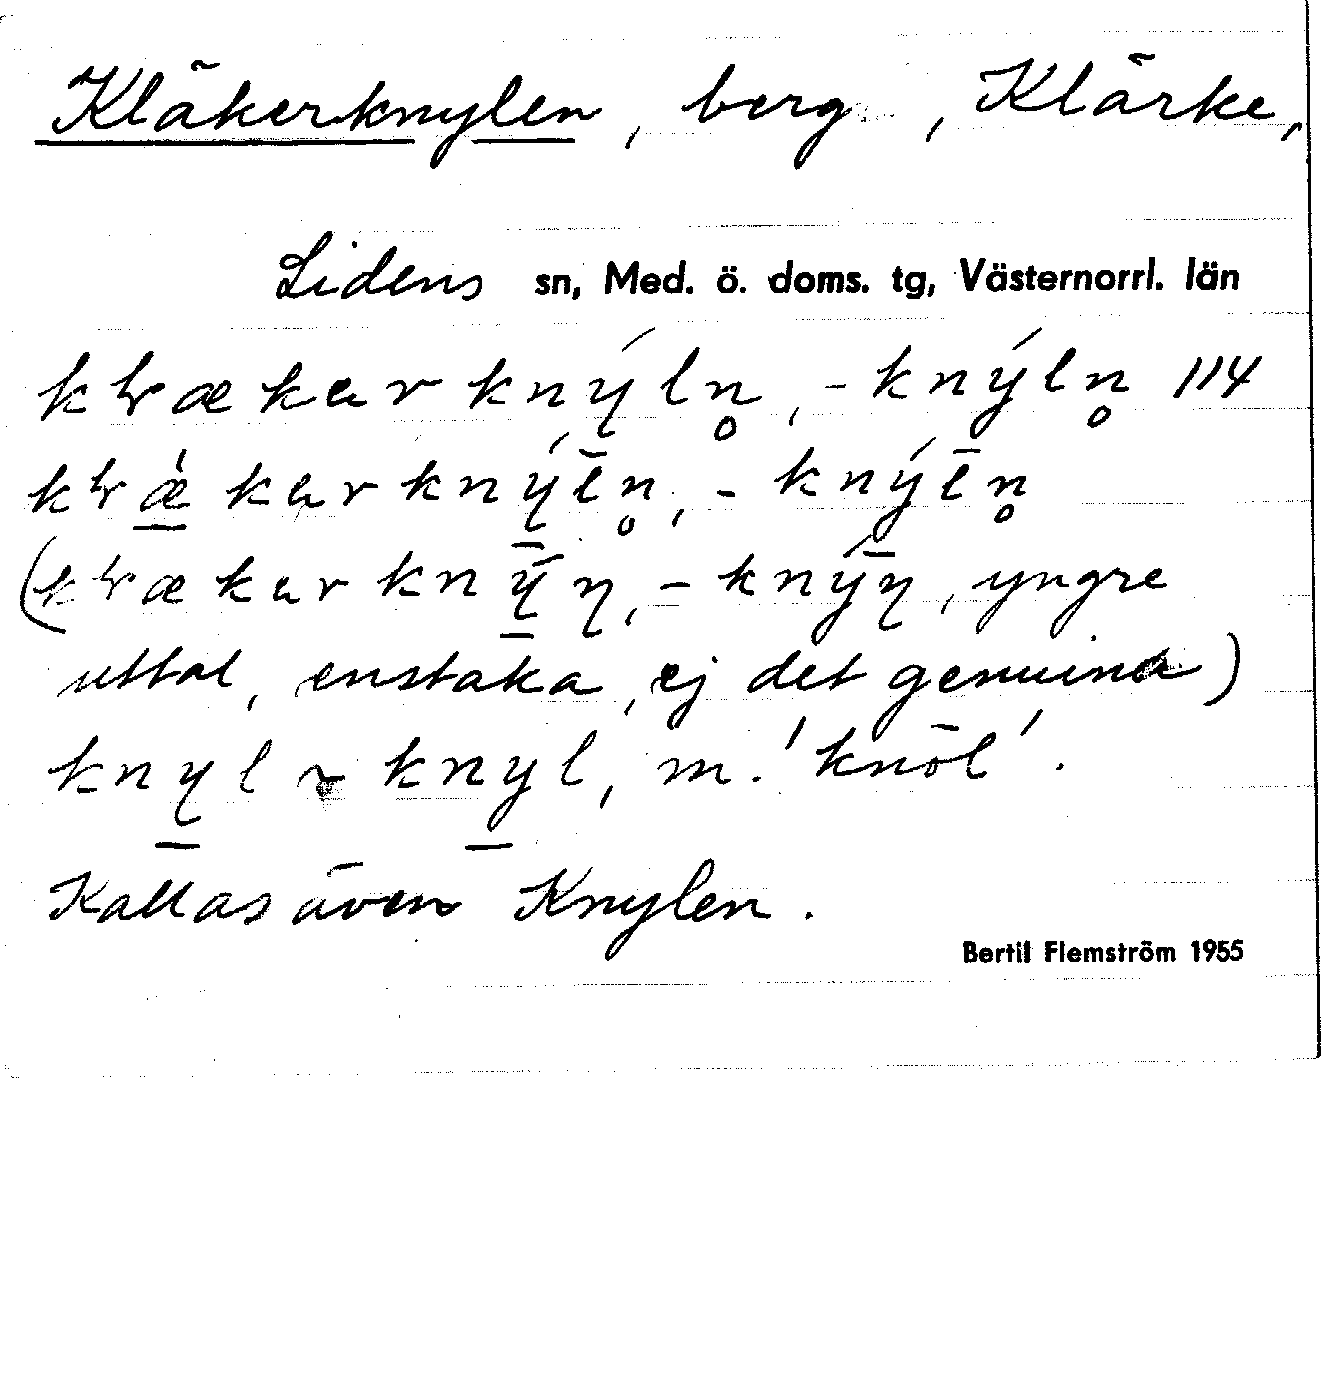 Kläkerknylen, berg, Klärke,
Lidens sn, Med. ö. doms. tg, Västernorrl. län
kɽækɐr knýln̥, -knýln̥ 114
kɽæ̀kɐr knýl̄n̥, -knýl̄n̥
(kɽækɐr knȳ́ɳ, -knȳ́ɳ, yngre
uttal, enstaka, ej det genuina)
knyl ~ knyl, m. 'knöl'.
Kallas även Knylen.
Bertil Flemström 1955